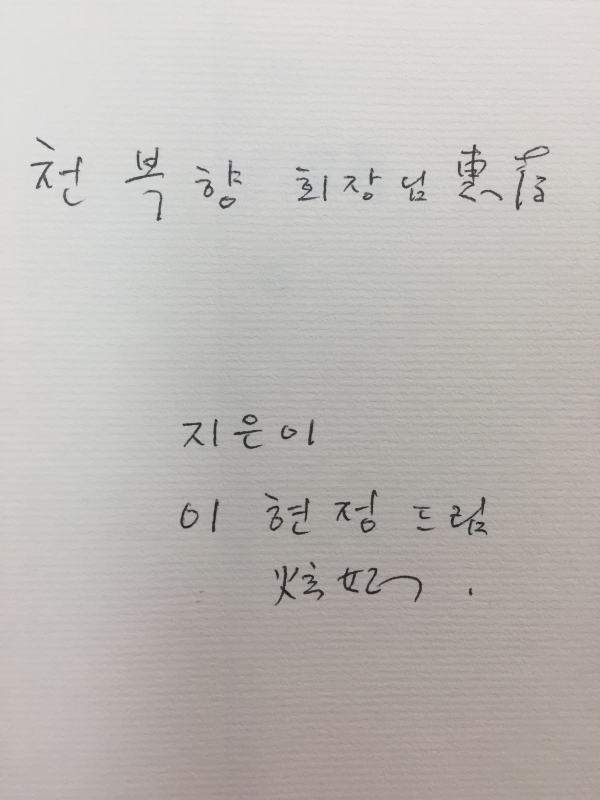 천 복향 회장님 惠存
지은이
이 현정 드림
炫妌